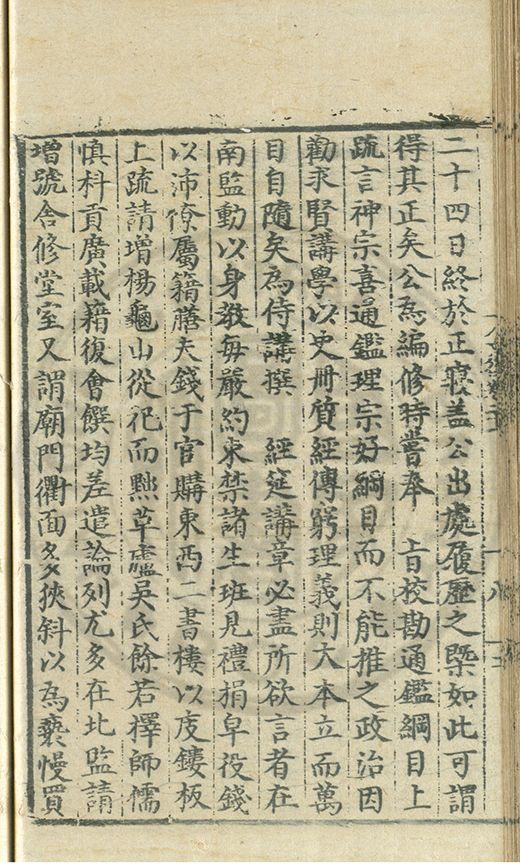 二十四日終於正寢盖公出處履歷之槩如此可謂
得其正矣公為編修時嘗奉　旨校勘通鑑綱目上
疏言神宗喜通鑑理宗好綱目而不能推之政治因
勸求賢講學以史冊質經傳窮理義則大本立而萬
目自隨矣為侍講撰　經筵講章必盡所欲言者在
南監動以身教每嚴約束禁諸生班見禮捐皁役錢
以沛僚屬籍膳夫錢于官購東西二書樓以庋鏤板
上疏請增楊龜山從祀而黜草廬吳氏餘若擇師儒
慎科貢廣載籍復會饌均差遣論列尤多在北監請
增號舍修堂室又謂廟門衢面多狹斜以為褻慢買